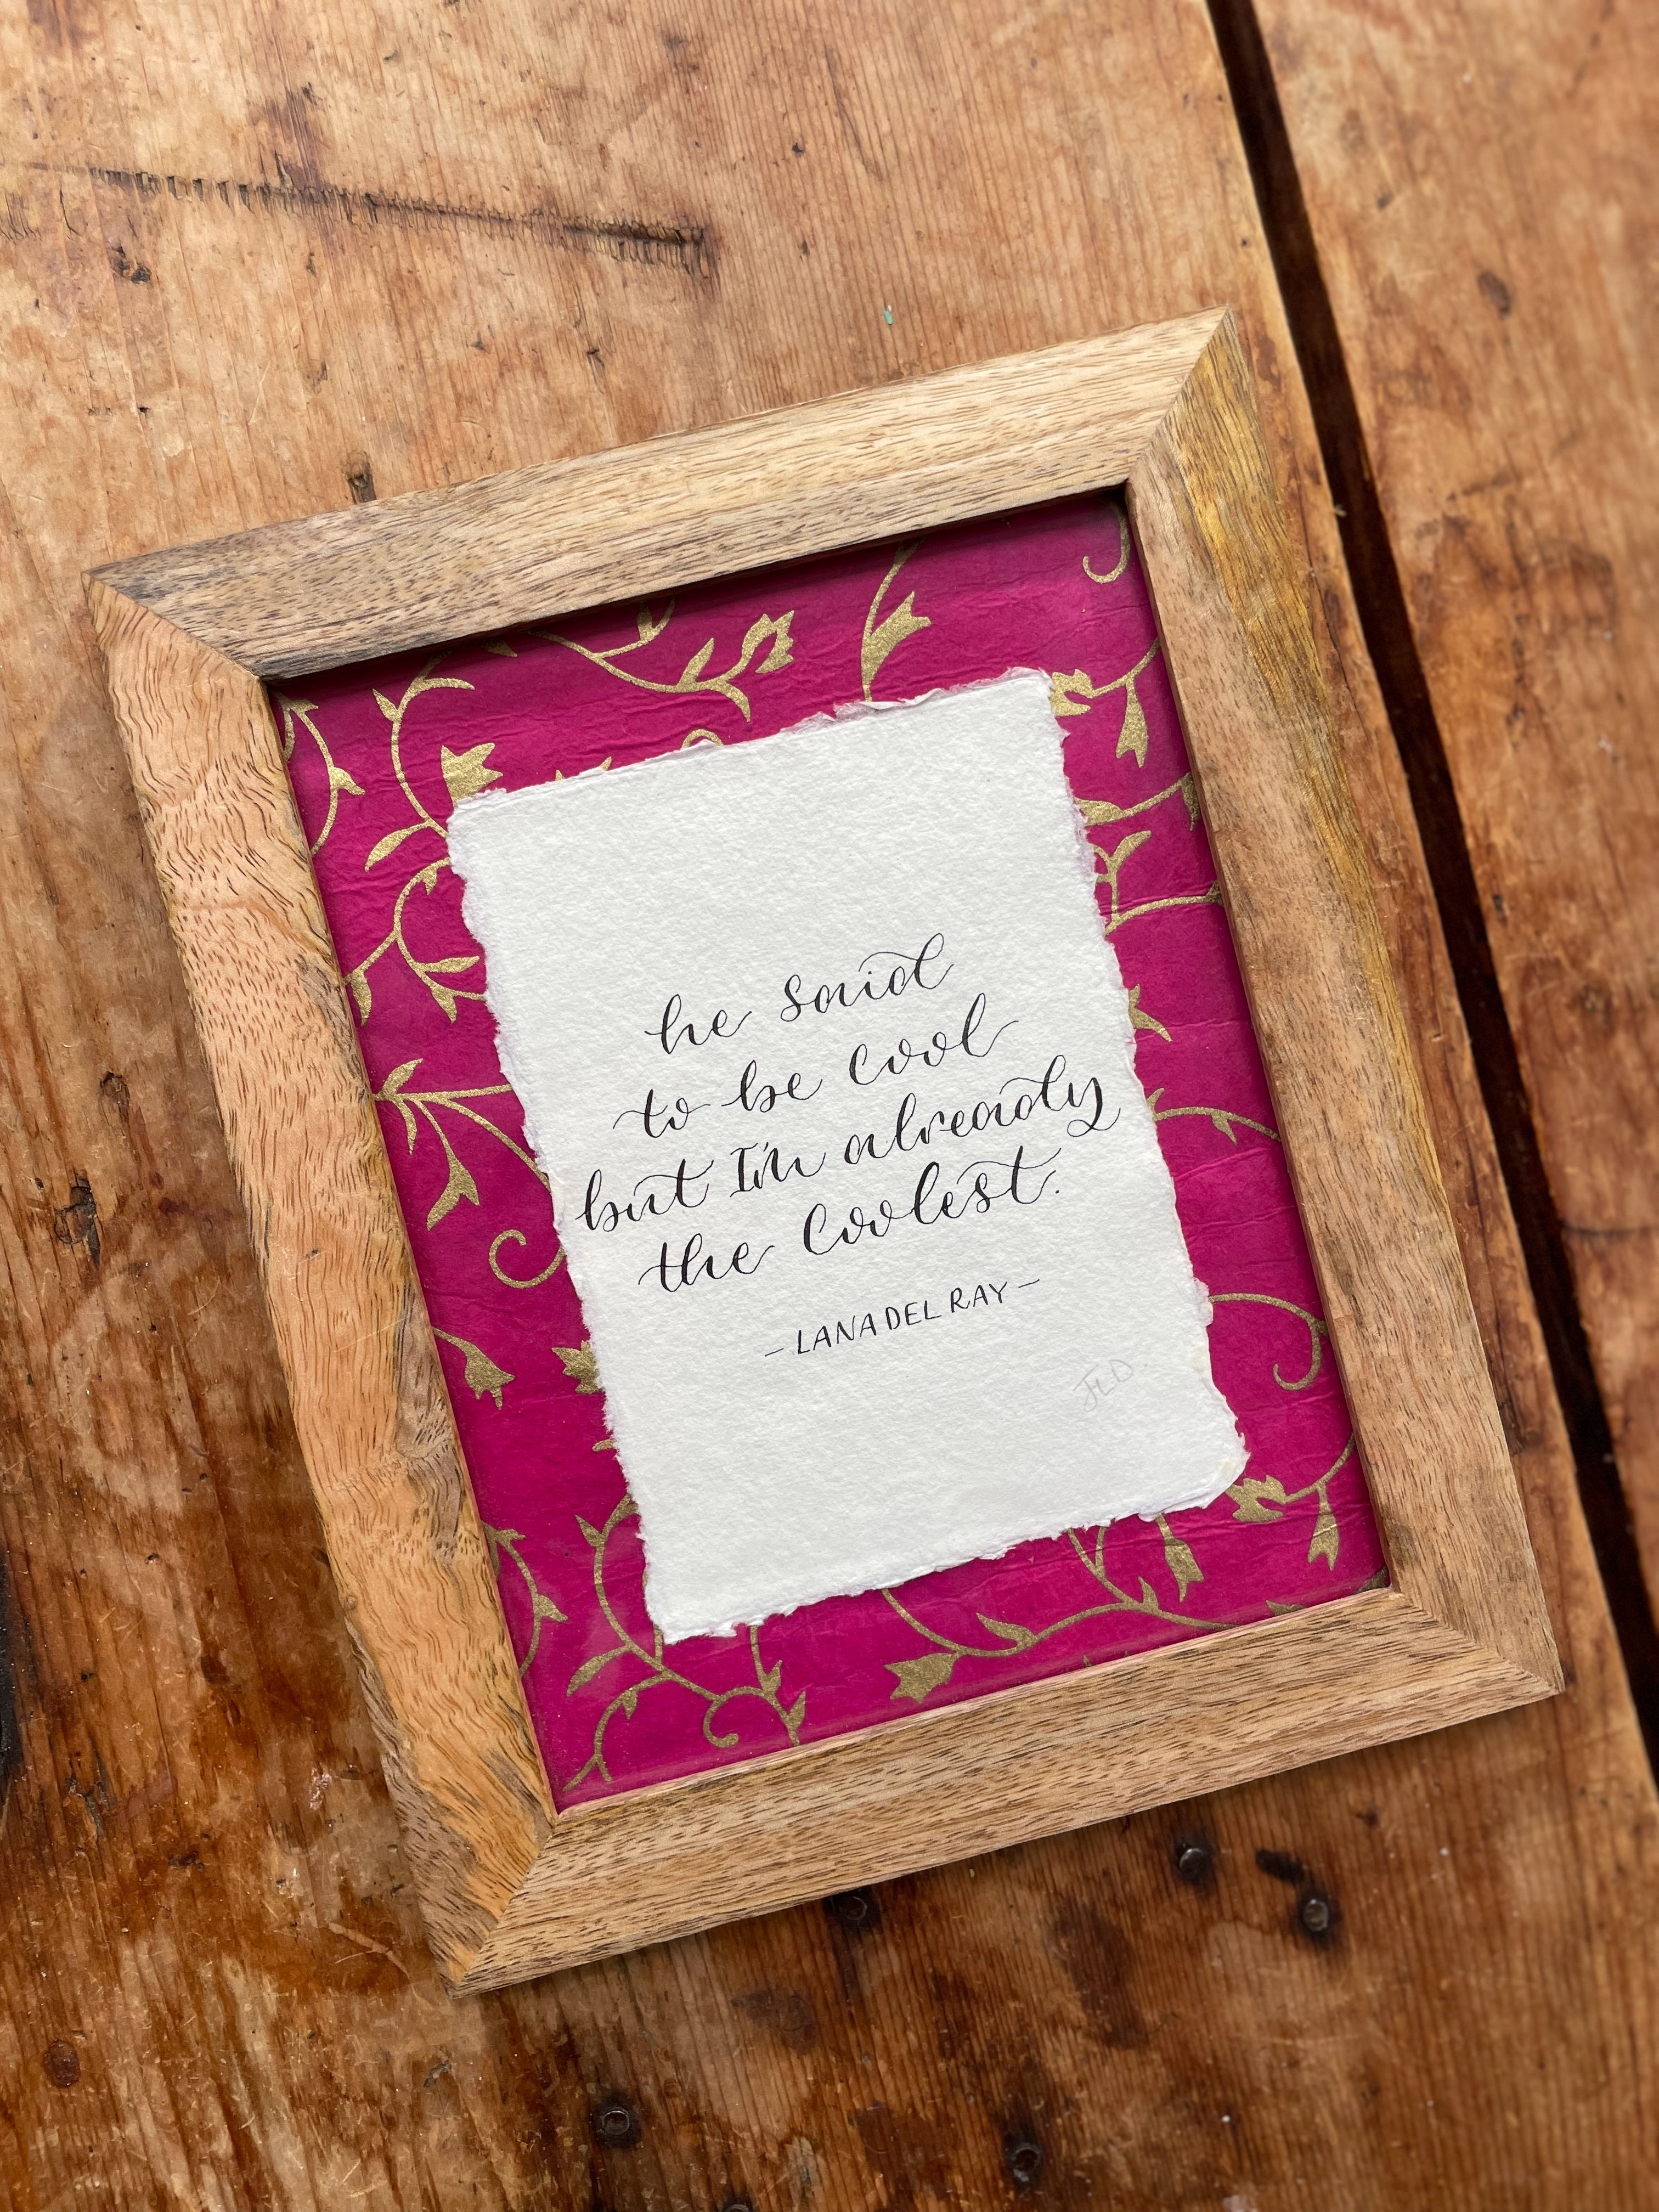 he said
to be cool
but I'm already
the coolest.
– LANA DEL RAY –
JLD